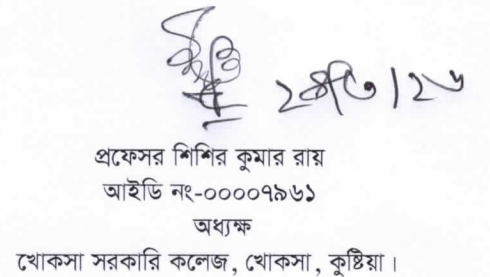 প্রফেসর শিশির কুমার রায়
আইডি নং-০০০০৭৯৬১
অধ্যক্ষ
খোকসা সরকারি কলেজ, খোকসা, কুষ্টিয়া।